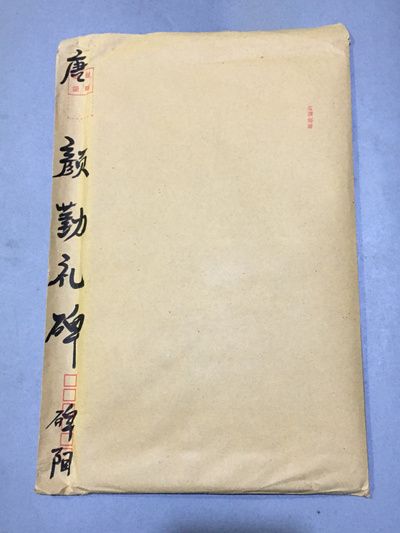 唐 颜勤礼碑 碑阳